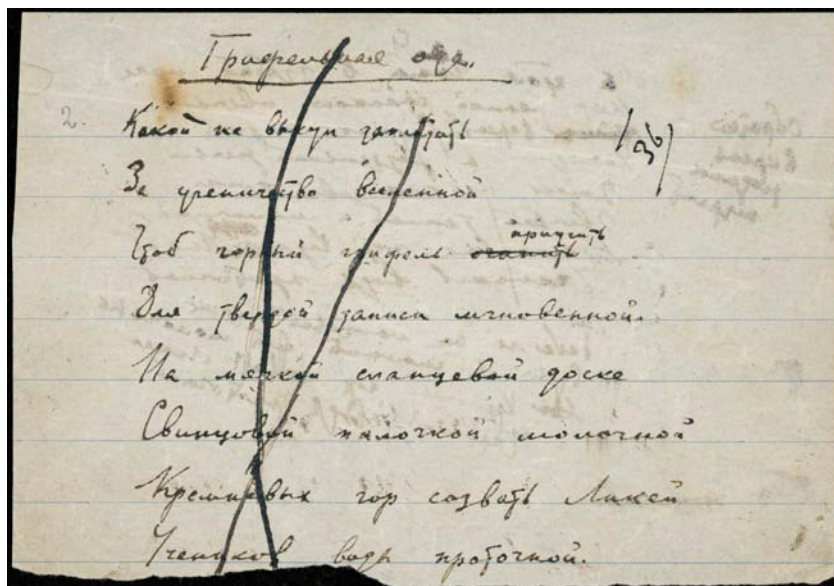 Грифельная ода.
2.
Какой же выкуп заплатить
За ученичество вселенной
36
приучить
Чтоб горный грифель
Для твердой записи мгновенной.
На мягкой сланцевой доске
Свинцовой палочкой молочной
Кремневых гор созвать Ликей
Учеников воды проточной.